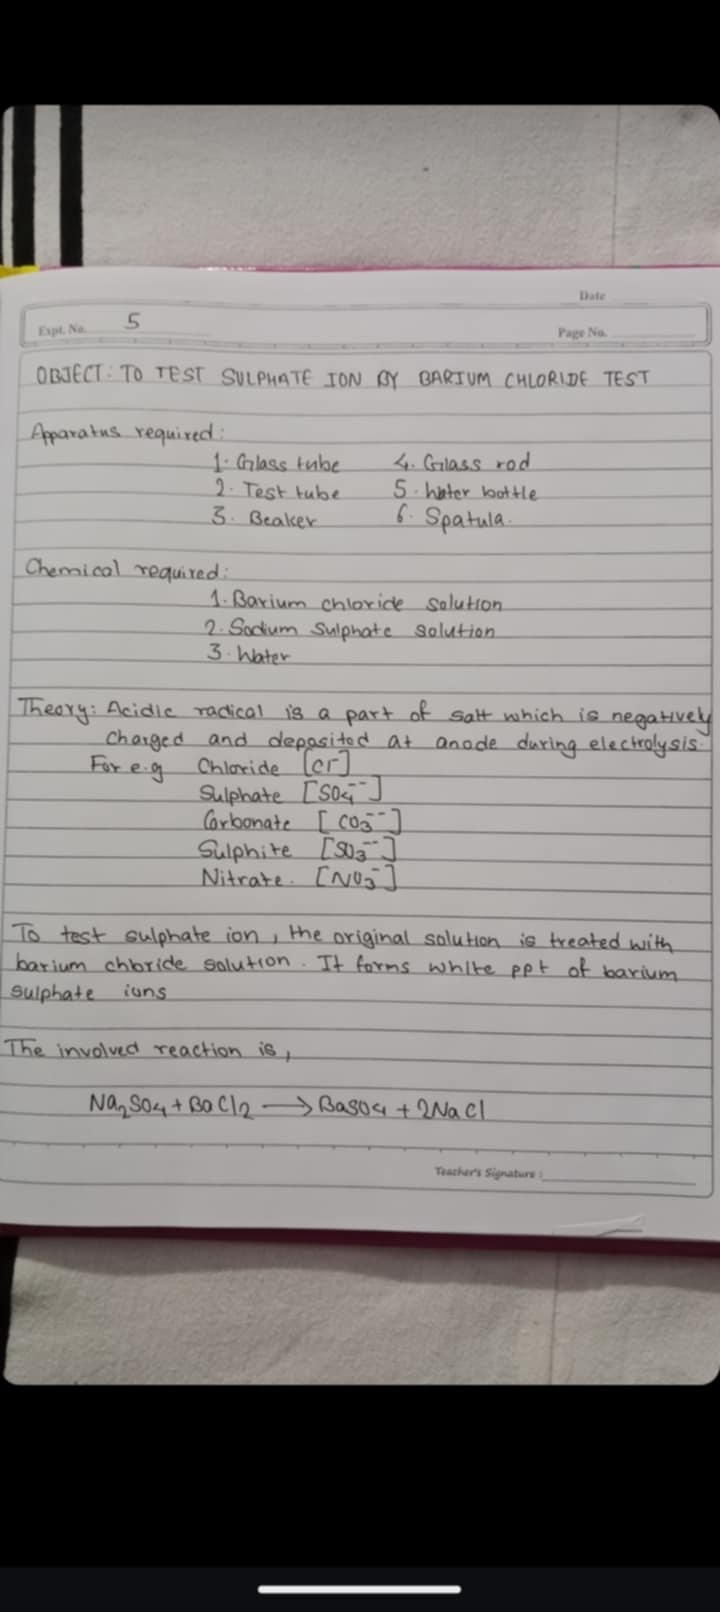 Date
Expt. No. 5
Page No.
OBJECT: TO TEST SULPHATE ION BY BARIUM CHLORIDE TEST
Apparatus required:
1. Glass tube 4. Glass rod
2. Test tube 5. Water bottle
3. Beaker 6. Spatula.
Chemical required:
1. Barium chloride solution
2. Sodium Sulphate solution
3. Water
Theory: Acidic radical is a part of salt which is negatively
charged and deposited at anode during electrolysis.
For e.g Chloride [Cl⁻]
Sulphate [SO₄⁻⁻]
Carbonate [CO₃⁻⁻]
Sulphite [SO₃⁻⁻]
Nitrate. [NO₃⁻]
To test sulphate ion, the original solution is treated with
barium chloride solution. It forms white ppt of barium
sulphate ions
The involved reaction is,
Na₂SO₄ + BaCl₂ ⟶ BaSO₄ + 2NaCl
Teacher's Signature :